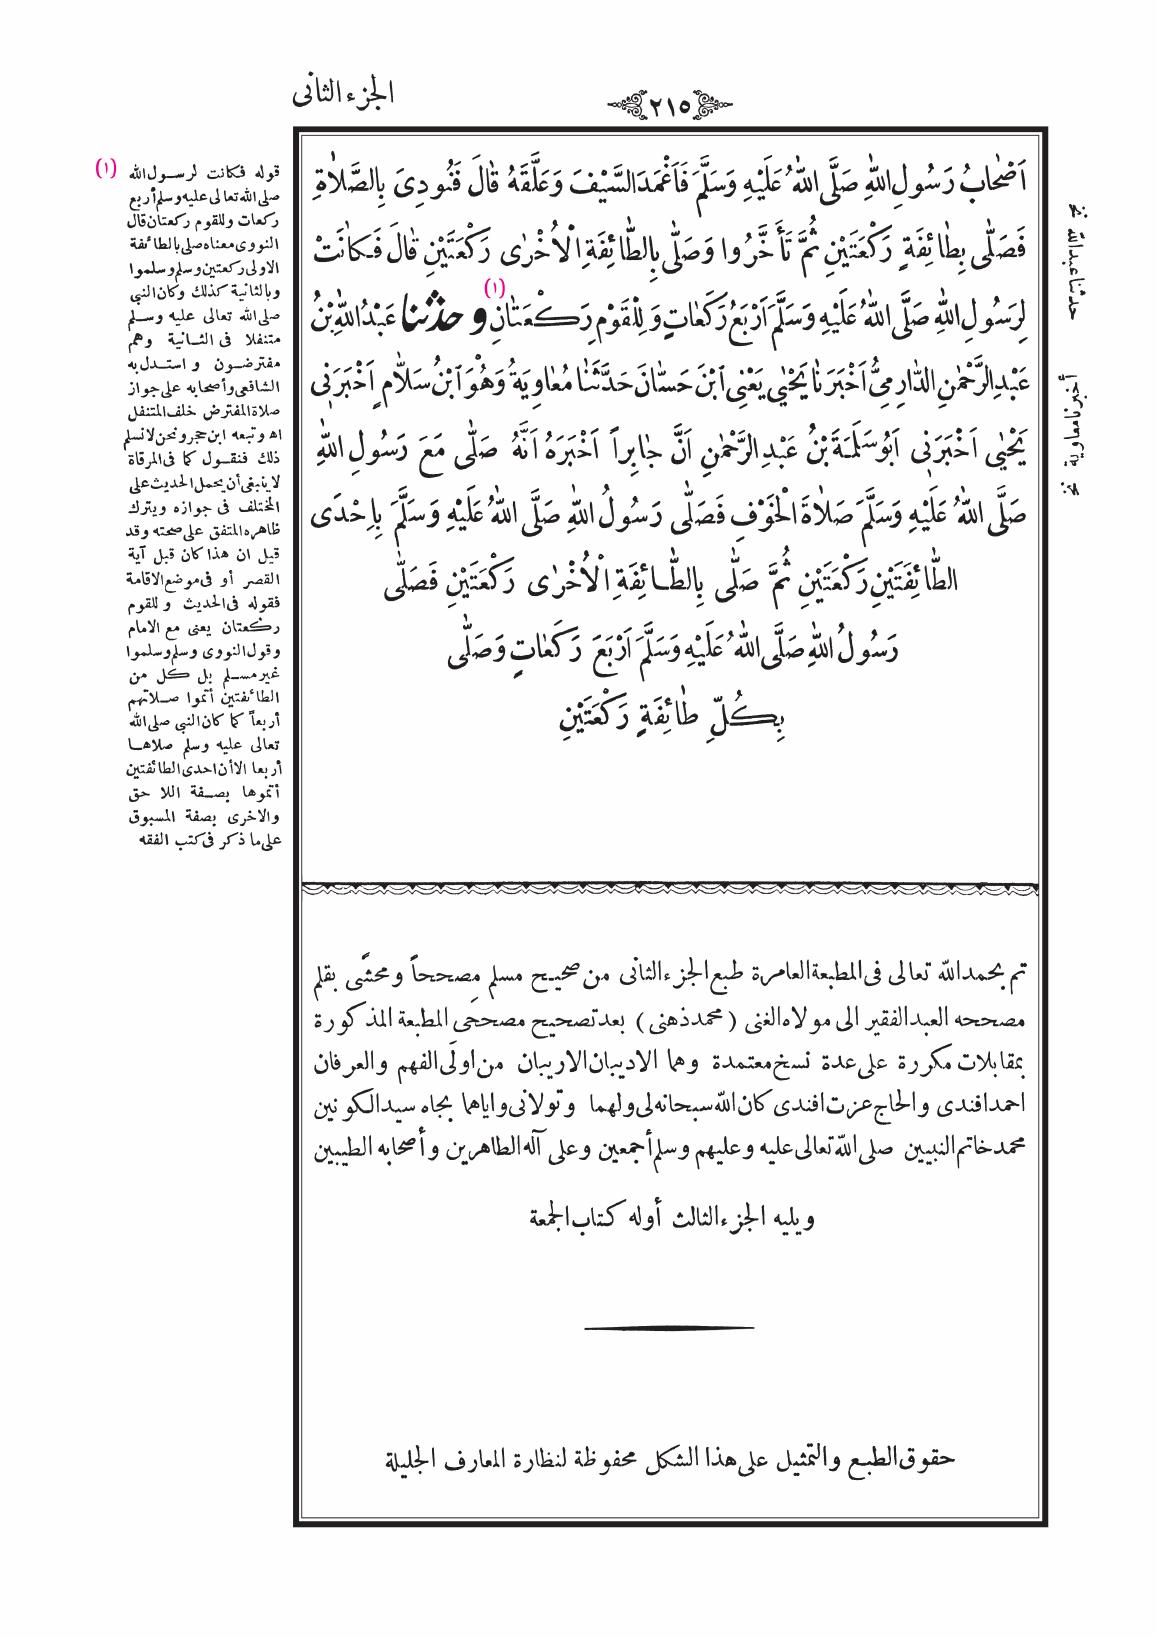 الجزء الثانى
٢١٥
اَصْحَابُ رَسُولِ اللهِ صَلَّى اللهُ عَلَيْهِ وَسَلَّمَ فَاَغْمَدَ السَّيْفَ وَعَلَّقَهُ قَالَ فَنُودِىَ بِالصَّلَاةِ
فَصَلَّى بِطَائِفَةٍ رَكْعَتَيْنِ ثُمَّ تَأَخَّرُوا وَصَلَّى بِالطَّائِفَةِ الْاُخْرٰى رَكْعَتَيْنِ قَالَ فَكَانَتْ
لِرَسُولِ اللهِ صَلَّى اللهُ عَلَيْهِ وَسَلَّمَ اَرْبَعُ رَكَعَاتٍ وَلِلْقَوْمِ رَكْعَتَانِ (١) وحدثنا عَبْدُ اللهِ بْنُ
عَبْدِ الرَّحْمٰنِ الدَّارِمِىُّ اَخْبَرَنَا يَحْيٰى يَعْنِى ابْنَ حَسَّانَ حَدَّثَنَا مُعَاوِيَةُ وَهُوَ ابْنُ سَلَّامٍ اَخْبَرَنِى
يَحْيٰى اَخْبَرَنِى اَبُوسَلَمَةَ بْنُ عَبْدِ الرَّحْمٰنِ اَنَّ جَابِراً اَخْبَرَهُ اَنَّهُ صَلَّى مَعَ رَسُولِ اللهِ
صَلَّى اللهُ عَلَيْهِ وَسَلَّمَ صَلَاةَ الْخَوْفِ فَصَلَّى رَسُولُ اللهِ صَلَّى اللهُ عَلَيْهِ وَسَلَّمَ بِاِحْدَى
الطَّائِفَتَيْنِ رَكْعَتَيْنِ ثُمَّ صَلَّى بِالطَّائِفَةِ الْاُخْرٰى رَكْعَتَيْنِ فَصَلَّى
رَسُولُ اللهِ صَلَّى اللهُ عَلَيْهِ وَسَلَّمَ اَرْبَعَ رَكَعَاتٍ وَصَلَّى
بِكُلِّ طَائِفَةٍ رَكْعَتَيْنِ
حدثنا عبدالله نخ
أخبرنا معاوية نخ
(١) قوله فكانت لرسول الله
صلى الله تعالى عليه وسلم أربع
ركعات وللقوم ركعتان قال
النووى معناه صلى بالطائفة
الاولى ركعتين وسلم وسلموا
وبالثانية كذلك وكان النبى
صلى الله تعالى عليه وسلم
متنفلا فى الثانية وهم
مفترضون واستدل به
الشافعى وأصحابه على جواز
صلاة المفترض خلف المتنفل
اه وتبعه ابن حجر ونحن لانسلم
ذلك فنقول كما فى المرقاة
لاينبغى أن يحمل الحديث على
المختلف فى جوازه ويترك
ظاهره المتفق على صحته وقد
قيل ان هذا كان قبل آية
القصر أو فى موضع الاقامة
فقوله فى الحديث وللقوم
ركعتان يعنى مع الامام
وقول النووى وسلم وسلموا
غير مسلم بل كل من
الطائفتين أتموا صلاتهم
أربعاً كما كان النبى صلى الله
تعالى عليه وسلم صلاها
أربعا الا أن احدى الطائفتين
أتموها بصفة اللاحق
والاخرى بصفة المسبوق
على ما ذكر فى كتب الفقه
تم بحمد الله تعالى فى المطبعة العامرة طبع الجزء الثانى من صحيح مسلم مصححاً ومحشّى بقلم
مصححه العبد الفقير الى مولاه الغنى (محمد ذهنى) بعد تصحيح مصححَى المطبعة المذكورة
بمقابلات مكررة على عدة نسخ معتمدة وهما الاديبان الاريبان من اولى الفهم والعرفان
احمد افندى والحاج عزت افندى كان الله سبحانه لى ولهما وتولانى واياهما بجاه سيد الكونين
محمد خاتم النبيين صلى الله تعالى عليه وعليهم وسلم أجمعين وعلى آله الطاهرين وأصحابه الطيبين
ويليه الجزء الثالث أوله كتاب الجمعة
حقوق الطبع والتمثيل على هذا الشكل محفوظة لنظارة المعارف الجليلة